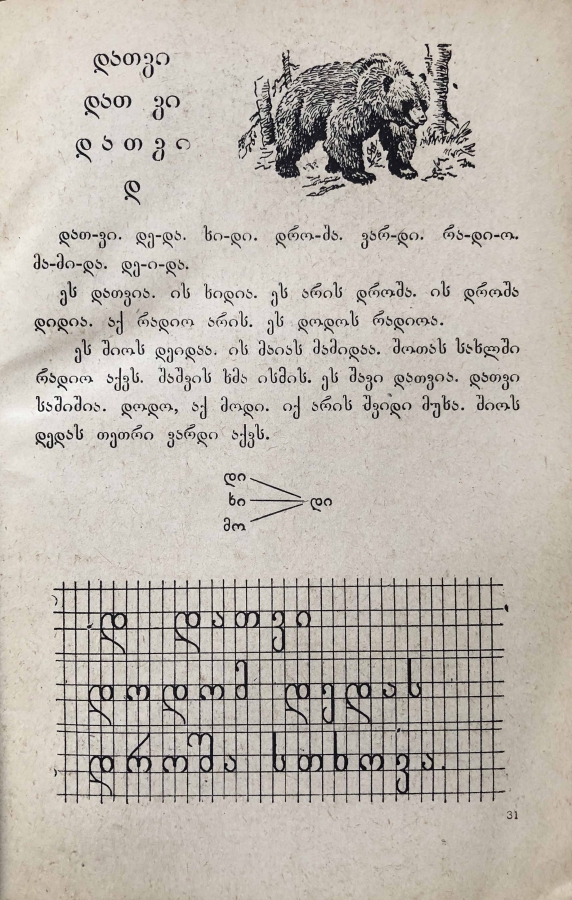 დათვი
დათ ვი
დ ა თ ვ ი
დ
დათ-ვი. დე-და. ხი-დი. დრო-შა. ვარ-დი. რა-დი-ო.
მა-მი-და. დე-ი-და.
ეს დათვია. ის ხიდია. ეს არის დროშა. ის დროშა
დიდია. აქ რადიო არის. ეს დოდოს რადიოა.
ეს შიოს დეიდაა. ის მაიას მამიდაა. შოთას სახლში
რადიო აქვს. შაშვის ხმა ისმის. ეს შავი დათვია. დათვი
საშიშია. დოდო, აქ მოდი. იქ არის შვიდი მუხა. შიოს
დედას თეთრი ვარდი აქვს.
დი
ხი დი
მო
დ დათვი
დოდომ დედას
დროშა სთხოვა.
31